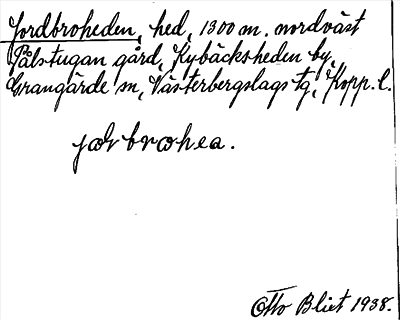 Jordbroheden, hed, 1300 m. nordväst
Pålstugan gård, Kybäcksheden by,
Grangärde sn, Västerbergslags tg, Kopp. l.
jorbrohea.
Otto Blixt 1938.